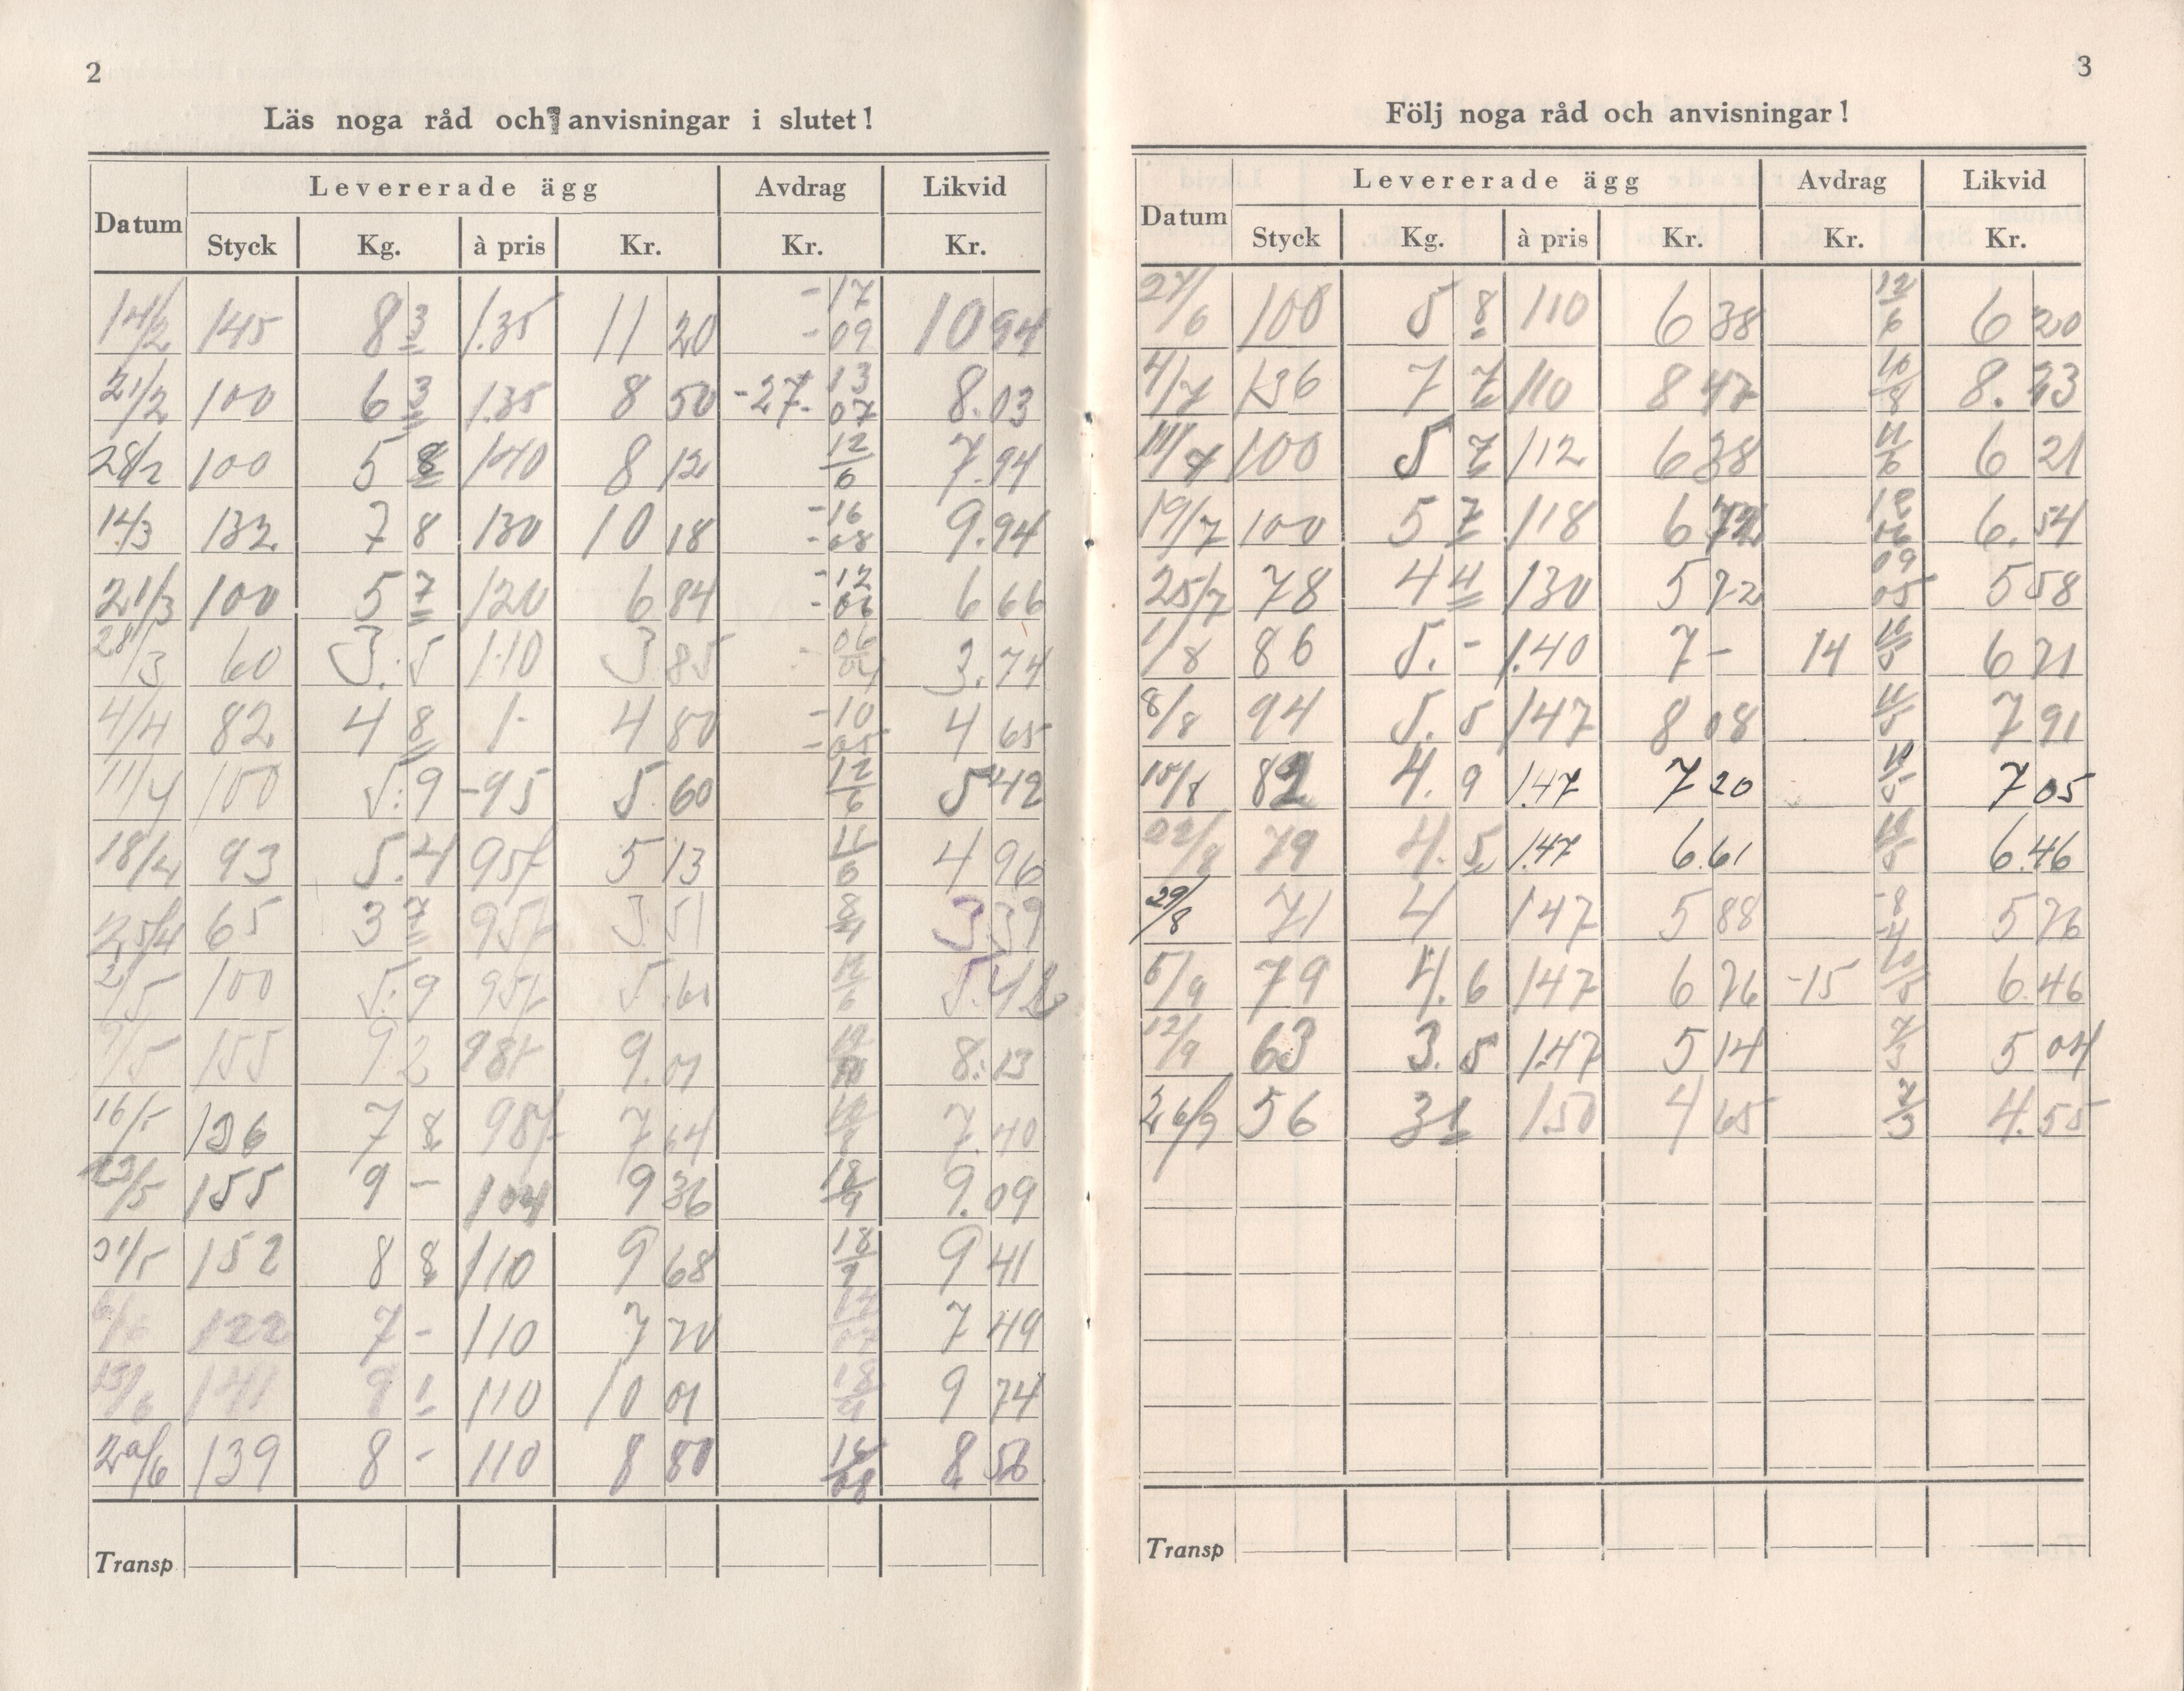 2
Läs noga råd och anvisningar i slutet!
Datum Levererade ägg Avdrag Likvid
Styck Kg. à pris Kr. Kr. Kr.
14/2 145 8 3 1.35 11 20 -17 -09 10 94
21/2 100 6 3 1.35 8 50 -27- 13 07 8.03
28/2 100 5 8 140 8 12 12 6 7.94
14/3 132 7 8 130 10 18 -16 -08 9.94
21/3 100 5 7 120 6 84 -12 -06 6 66
28/3 60 3.5 1.10 3 85 06 04 3.74
4/4 82 4 8 1- 4 80 -10 -05 4 65
11/4 100 5.9 -95 5.60 12 6 5 42
18/4 93 5.4 95 5 13 11 6 4 96
25/4 65 3 7 95 3 51 8 4 3 39
2/5 100 5.9 95 5. 12 6 5.42
9/5 155 9 2 98 9.01 8.
16/5 136 7 8 98 7 64 16 8 7.40
23/5 155 9 - 104 9 36 18 9 9.09
31/5 152 8 8 110 9 68 18 9 9 41
6/6 122 7 - 110 7 70 14 07 7 49
13/6 141 9 1 110 10 01 18 9 74
20/6 139 8 - 110 8 80 16 08 8 56
Transp
3
Följ noga råd och anvisningar!
Datum Levererade ägg Avdrag Likvid
Styck Kg. à pris Kr. Kr. Kr.
27/6 100 5 8 110 6 38 12 6 6 20
4/7 136 7 7 110 8 47 16 8 8.23
11/7 100 5 7 112 6 38 11 6 6 21
19/7 100 5 7 118 6 72 12 06 6.54
25/7 78 4 4 130 5 72 09 05 5 58
1/8 86 5.- 1.40 7 - 14 10 5 6 71
8/8 94 5.5 147 8 08 11 5 7 91
15/8 82 4.9 1.47 7 20 10 5 7 05
22/8 79 4.5 1.47 6.61 10 5 6.46
29/8 71 4 147 5 88 -8 -4 5 76
5/9 79 4.6 147 6 76 -15 10 5 6.46
12/9 63 3.5 1.47 5 14 7 3 5 04
26/9 56 3 1 150 4 65 7 3 4.55
Transp